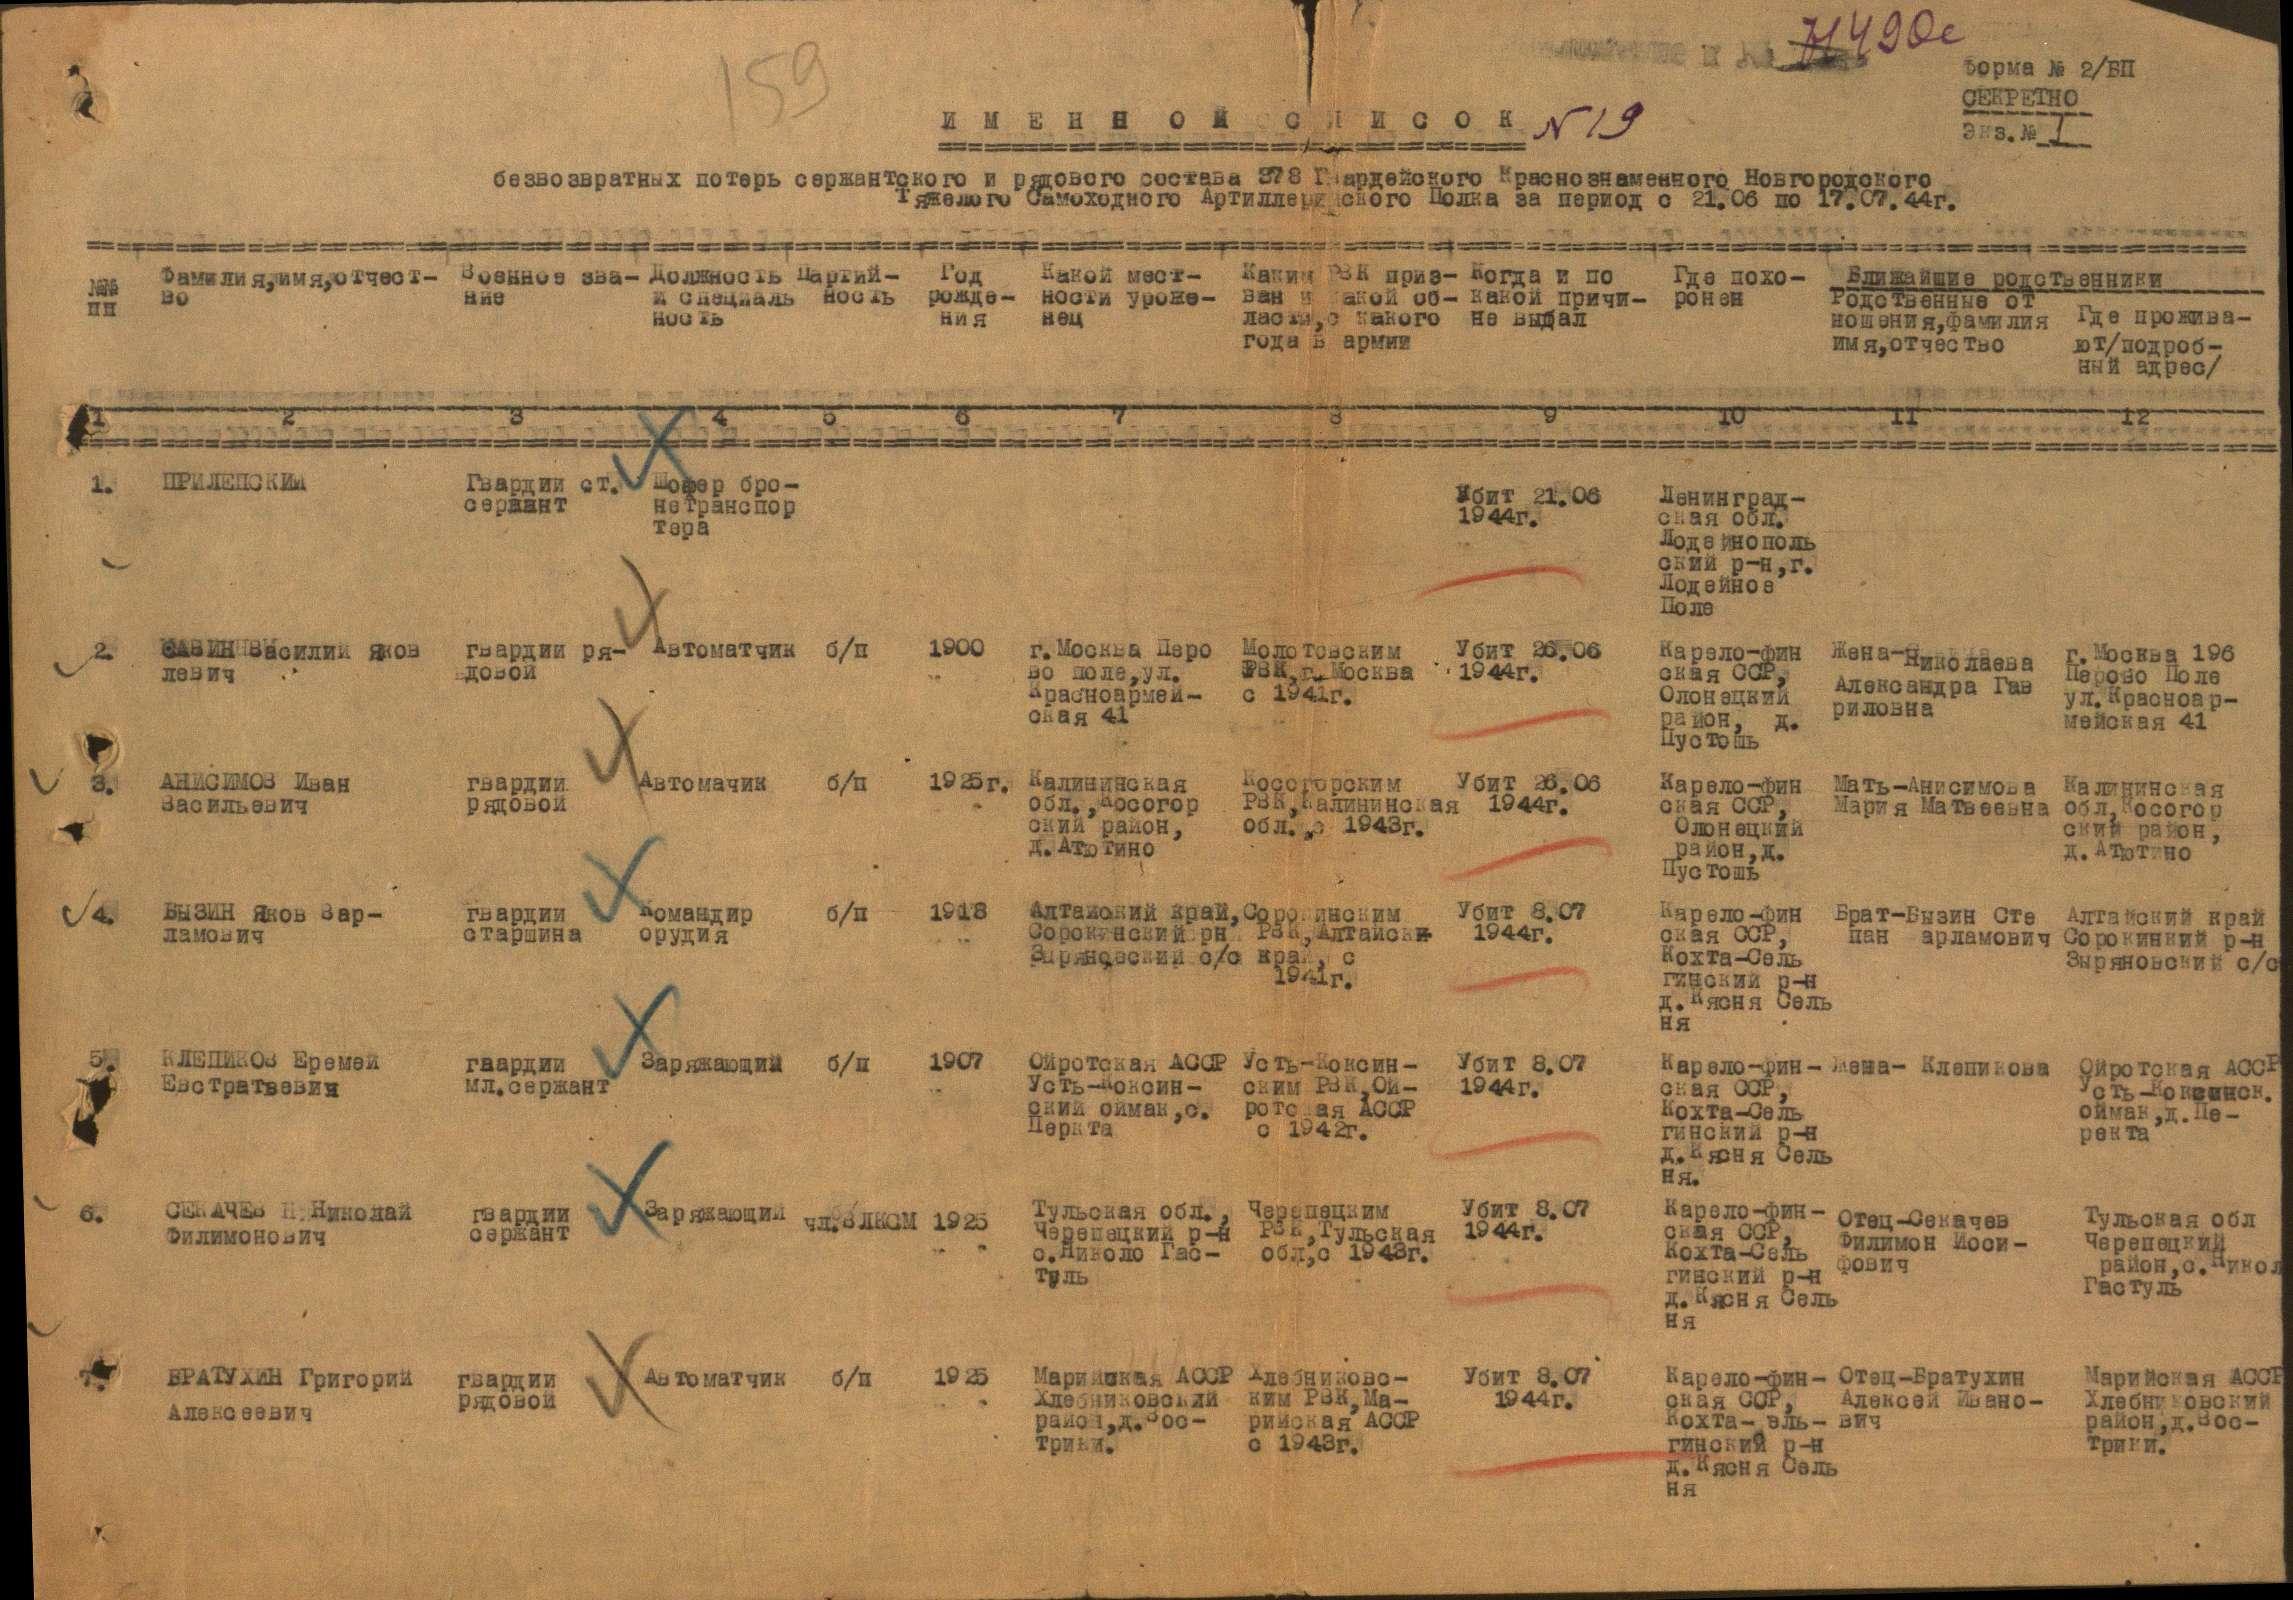 159
Н490с
Форма № 2/БП
СЕКРЕТНО
Экз.№ 1
ИМЕННОЙ СПИСОК N19
безвозвратных потерь сержантского и рядового состава 378 Гвардейского Краснознаменного Новгородского
Тяжелого Самоходного Артиллерийского Полка за период с 21.06 по 17.07.44г.
№№
пп
Фамилия,имя,отчест-
во
Военное зва-
ние
Должность
и специаль
ность
Партий-
ность
Год
рожде-
ния
Какой мест-
ности уроже-
нец
Каким РВК приз-
ван и какой об-
ласти,с какого
года в армии
Когда и по
какой причи-
не выбал
Где похо-
ронен
Ближайшие родственники
Родственные от
ношения,фамилия
имя,отчество
Где прожива-
ют/подроб-
ный адрес/
1 2 3 4 5 6 7 8 9 10 11 12
1.
ПРИЛЕПСКИЙ
Гвардии ст.
сержант
Шофер бро-
нетранспор
тера
Убит 21.06
1944г.
Ленинград-
ская обл.
Лодейнополь
ский р-н,г.
Лодейное
Поле
2.
САВИН Василий Яков
левич
гвардии ря-
довой
Автоматчик
б/п
1900
г.Москва Перо
во поле,ул.
Красноармей-
ская 41
Молотовским
РВК,г.Москва
с 1941г.
Убит 26.06
1944г.
Карело-фин
ская ССР,
Олонецкий
район, д.
Пустошь
Жена-
Николаева
Александра Гав
риловна
г.Москва 196
Перово Поле
ул.Красноар-
мейская 41
3.
АНИСИМОВ Иван
Васильевич
гвардии
рядовой
Автомачик
б/п
1925г.
Калининская
обл.,Косогор
ский район,
д.Атютино
Косогорским
РВК,Калининская
обл.,с 1943г.
Убит 26.06
1944г.
Карело-фин
ская ССР,
Олонецкий
район,д.
Пустошь
Мать-Анисимова
Мария Матвеевна
Калининская
обл,Косогор
ский район,
д.Атютино
4.
БЫЗИН Яков Вар-
ламович
гвардии
старшина
Командир
орудия
б/п
1918
Алтайский край,
Сорокинский рн
Зыряновский с/с
Сорокинским
РВК,Алтайски
край, с
1941г.
Убит 8.07
1944г.
Карело-фин
ская ССР,
Кохта-Сель
гинский р-н
д.Кясня Сель
ня
Брат-Бызин Сте
пан арламович
Алтайский край
Сорокинкий р-н
Зыряновский с/с
5.
КЛЕПИКОВ Еремей
Евстратьевич
гвардии
мл.сержант
Заряжающий
б/п
1907
Ойротская АССР
Усть-Коксин-
ский ойман,с.
Перкта
Усть-Коксин-
ским РВК,Ой-
ротская АССР
с 1942г.
Убит 8.07
1944г.
Карело-фин-
ская ССР,
Кохта-Сель
гинский р-н
д.Кясня Сель
ня.
Жена- Клепикова
Ойротская АССР
Усть-Коксинск.
ойман,д.Пе-
ректа
6.
СЕКАЧЕВ Н Николай
Филимонович
гвардии
сержант
Заряжающий
чл.ВЛКСМ
1925
Тульская обл.,
Черепецкий р-н
с.Николо Гас-
туль
Черепецким
РВК,Тульская
обл,с 1943г.
Убит 8.07
1944г.
Карело-фин-
ская ССР,
Кохта-Сель
гинский р-н
д.Кясня Сель
ня
Отец-Секачев
Филимон Иоси-
фович
Тульская обл
Черепецкий
район,с.Никол
Гастуль
7.
БРАТУХИН Григорий
Алексеевич
гвардии
рядовой
Автоматчик
б/п
1925
Марийская АССР
Хлебниковский
район,д.Вос-
трики.
Хлебниковс-
ким РВК,Ма-
рийская АССР
с 1943г.
Убит 8.07
1944г.
Карело-фин-
ская ССР,
Кохта- ель-
гинский р-н
д.Кясня Сель
ня
Отец-Братухин
Алексей Ивано-
вич
Марийская АССР
Хлебниковский
район,д.Вос-
трики.